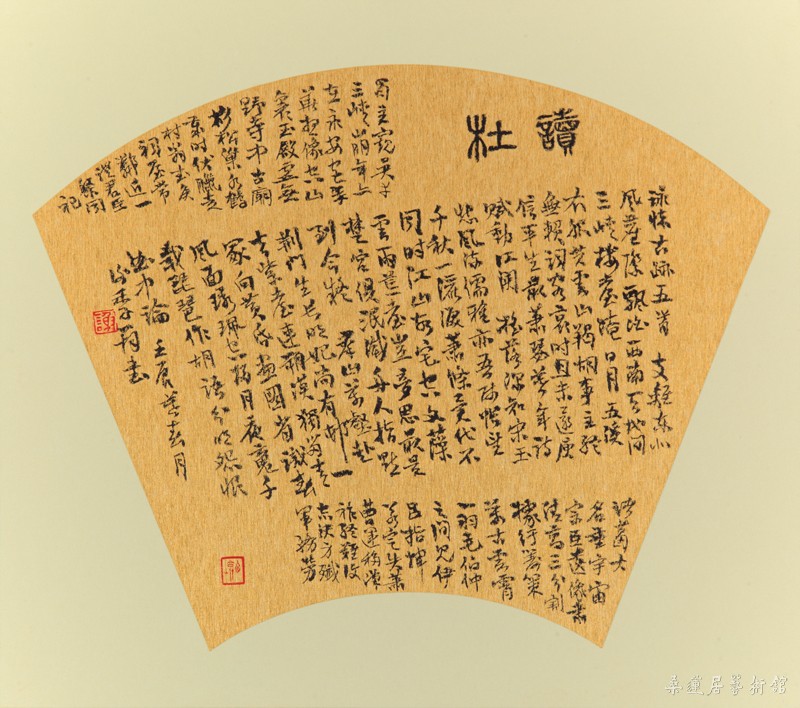 讀杜
詠懷古跡五首 支離東北
風塵際飄泊西南天地間
三峽樓臺淹日月五溪
衣服共雲山羯胡事主終
無賴詞客哀時且未還庾
信平生最蕭瑟暮年詩
賦動江關 搖落深知宋玉
悲風流儒雅亦吾師悵望
千秋一灑淚蕭條異代不
同時江山故宅空文藻
雲雨荒臺豈夢思最是
楚宮俱泯滅舟人指點
到今疑 群山萬壑赴
荊門生長明妃尚有邨一
去紫臺連朔漠獨留青
冢向黃昏畫圖省識春
風面環珮空歸月夜魂千
載琵琶作胡語分明怨恨
曲中論 壬辰年春月
書
蜀主窺吳幸
三峽崩年亦
在永安宮翠
華想像空山
裏玉殿虛無
野寺中古廟
杉松巢水鶴
歲時伏臘走
村翁武侯
祠屋常
鄰近一
體君臣
祭同
祀
諸葛大
名垂宇宙
宗臣遺像肅
清高三分割
據紆籌策
萬古雲霄
一羽毛伯仲
之間見伊
呂指揮
若定失蕭
曹運移漢
祚終難復
志決身殲
軍務勞
桑蓮居藝術館